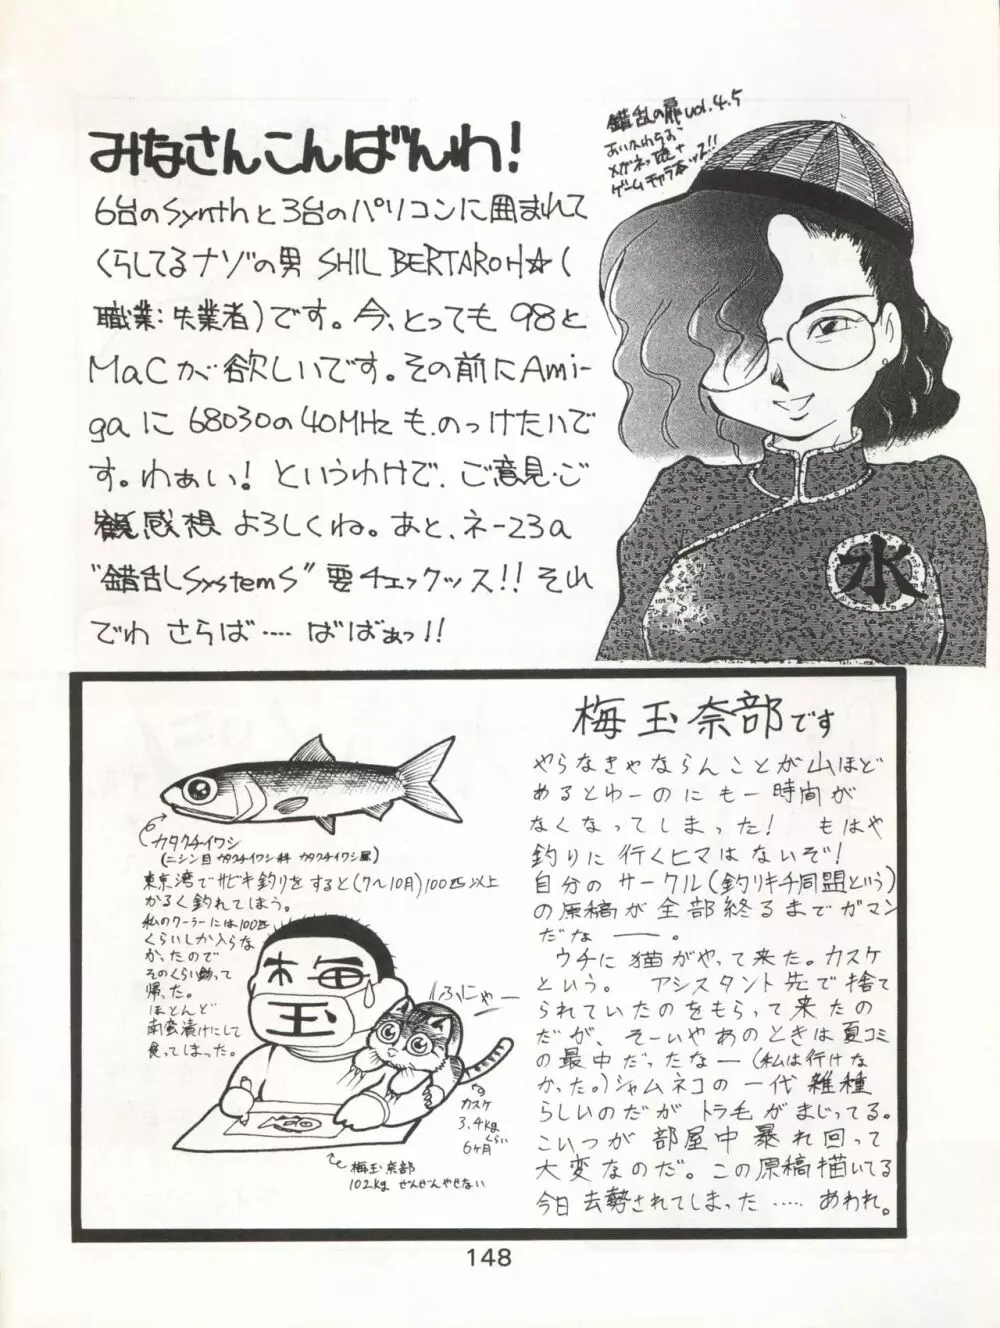 みなさんこんばんわ!
6台のSynthと3台のパソコンに囲まれて
くらしてるナゾの男 SHIL BERTAROH☆(
職業:失業者)です。今、とっても 98と
MaCが欲しいです。その前にAmi-
gaに68030の40MHzも、のっけたいで
す。わぁい! というわけで、ご意見・ご
感想 よろしくね。あと、ネー23a
"錯乱SystemS" 要チェックッス!! それ
でわ さらば‥‥ ばばぁっ!!
錯乱の扉vol.4.5
メガネっ娘+
ゲームキャラ本ッス!!
水
梅玉奈部です
やらなきゃならんことが山ほど
あるとゆーのにもー時間が
なくなってしまった! もはや
釣りに行くヒマはないぞ!
自分のサークル(釣りキチ同盟という)
の原稿が全部終るまでガマン
だなー。
ウチに猫がやって来た。カスケ
という。アシスタント先で捨て
られていたのをもらって来たの
だが、そーいやあのときは夏コミ
の最中だったなー(私は行けな
かった。)シャムネコの一代雑種
らしいのだがトラ毛がまじってる。
こいつが部屋中暴れ回って
大変なのだ。この原稿描いてる
今日去勢されてしまった‥‥‥あわれ。
カタクチイワシ
(ニシン目カタクチイワシ科カタクチイワシ属)
東京湾でサビキ釣りをすると(7〜10月)100匹以上
かるく釣れてしまう。
私のクーラーには100匹
くらいしか入らな
かったので
そのくらい釣って
帰った。
ほとんど
南蛮漬けにして
食ってしまった。
梅
玉
ふにゃー
カスケ
3.4kg
くらい
6ヶ月
梅玉奈部
102kg ぜんぜんやせない
148